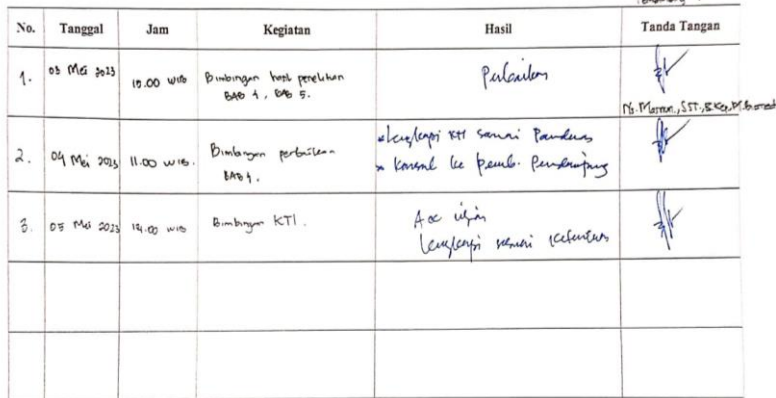 No. Tanggal Jam Kegiatan Hasil Tanda Tangan
1. 03 Mei 2023 10.00 WIB Bimbingan hasil penelitian Perbaikan
BAB 4, BAB 5.
2. 04 Mei 2023 11.00 WIB. Bimbingan perbaikan Lengkapi KTI sesuai Panduan
BAB 4. Konsul ke pemb. Pendamping
3. 05 Mei 2023 14.00 WIB Bimbingan KTI. Acc ujian
Lengkapi sesuai ketentuan